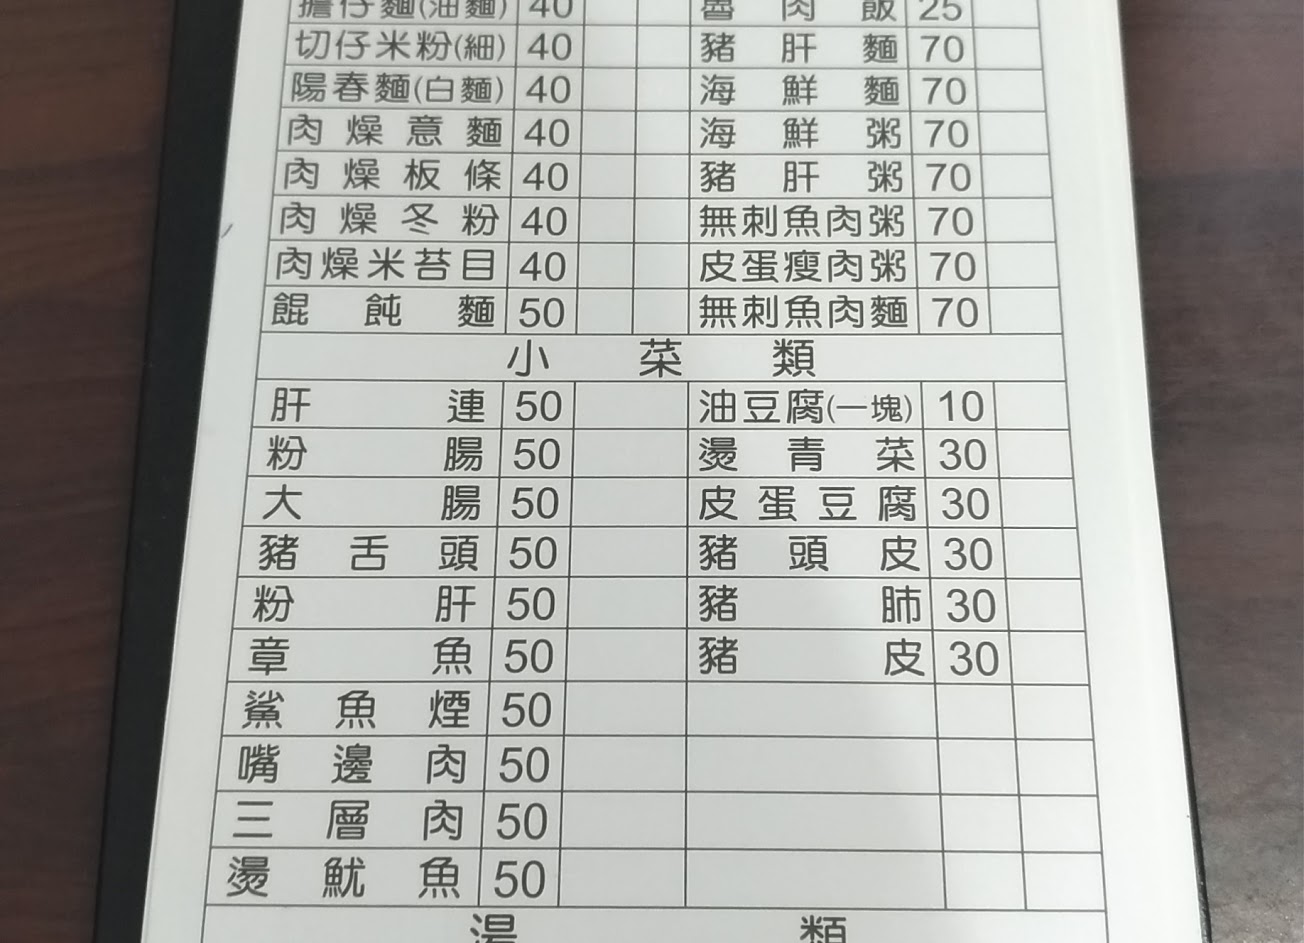 擔仔麵(油麵) 40 魯肉飯 25
切仔米粉(細) 40 豬肝麵 70
陽春麵(白麵) 40 海鮮麵 70
肉燥意麵 40 海鮮粥 70
肉燥板條 40 豬肝粥 70
肉燥冬粉 40 無刺魚肉粥 70
肉燥米苔目 40 皮蛋瘦肉粥 70
餛飩麵 50 無刺魚肉麵 70
小菜類
肝連 50 油豆腐(一塊) 10
粉腸 50 燙青菜 30
大腸 50 皮蛋豆腐 30
豬舌頭 50 豬頭皮 30
粉肝 50 豬肺 30
章魚 50 豬皮 30
鯊魚煙 50
嘴邊肉 50
三層肉 50
燙魷魚 50
湯類